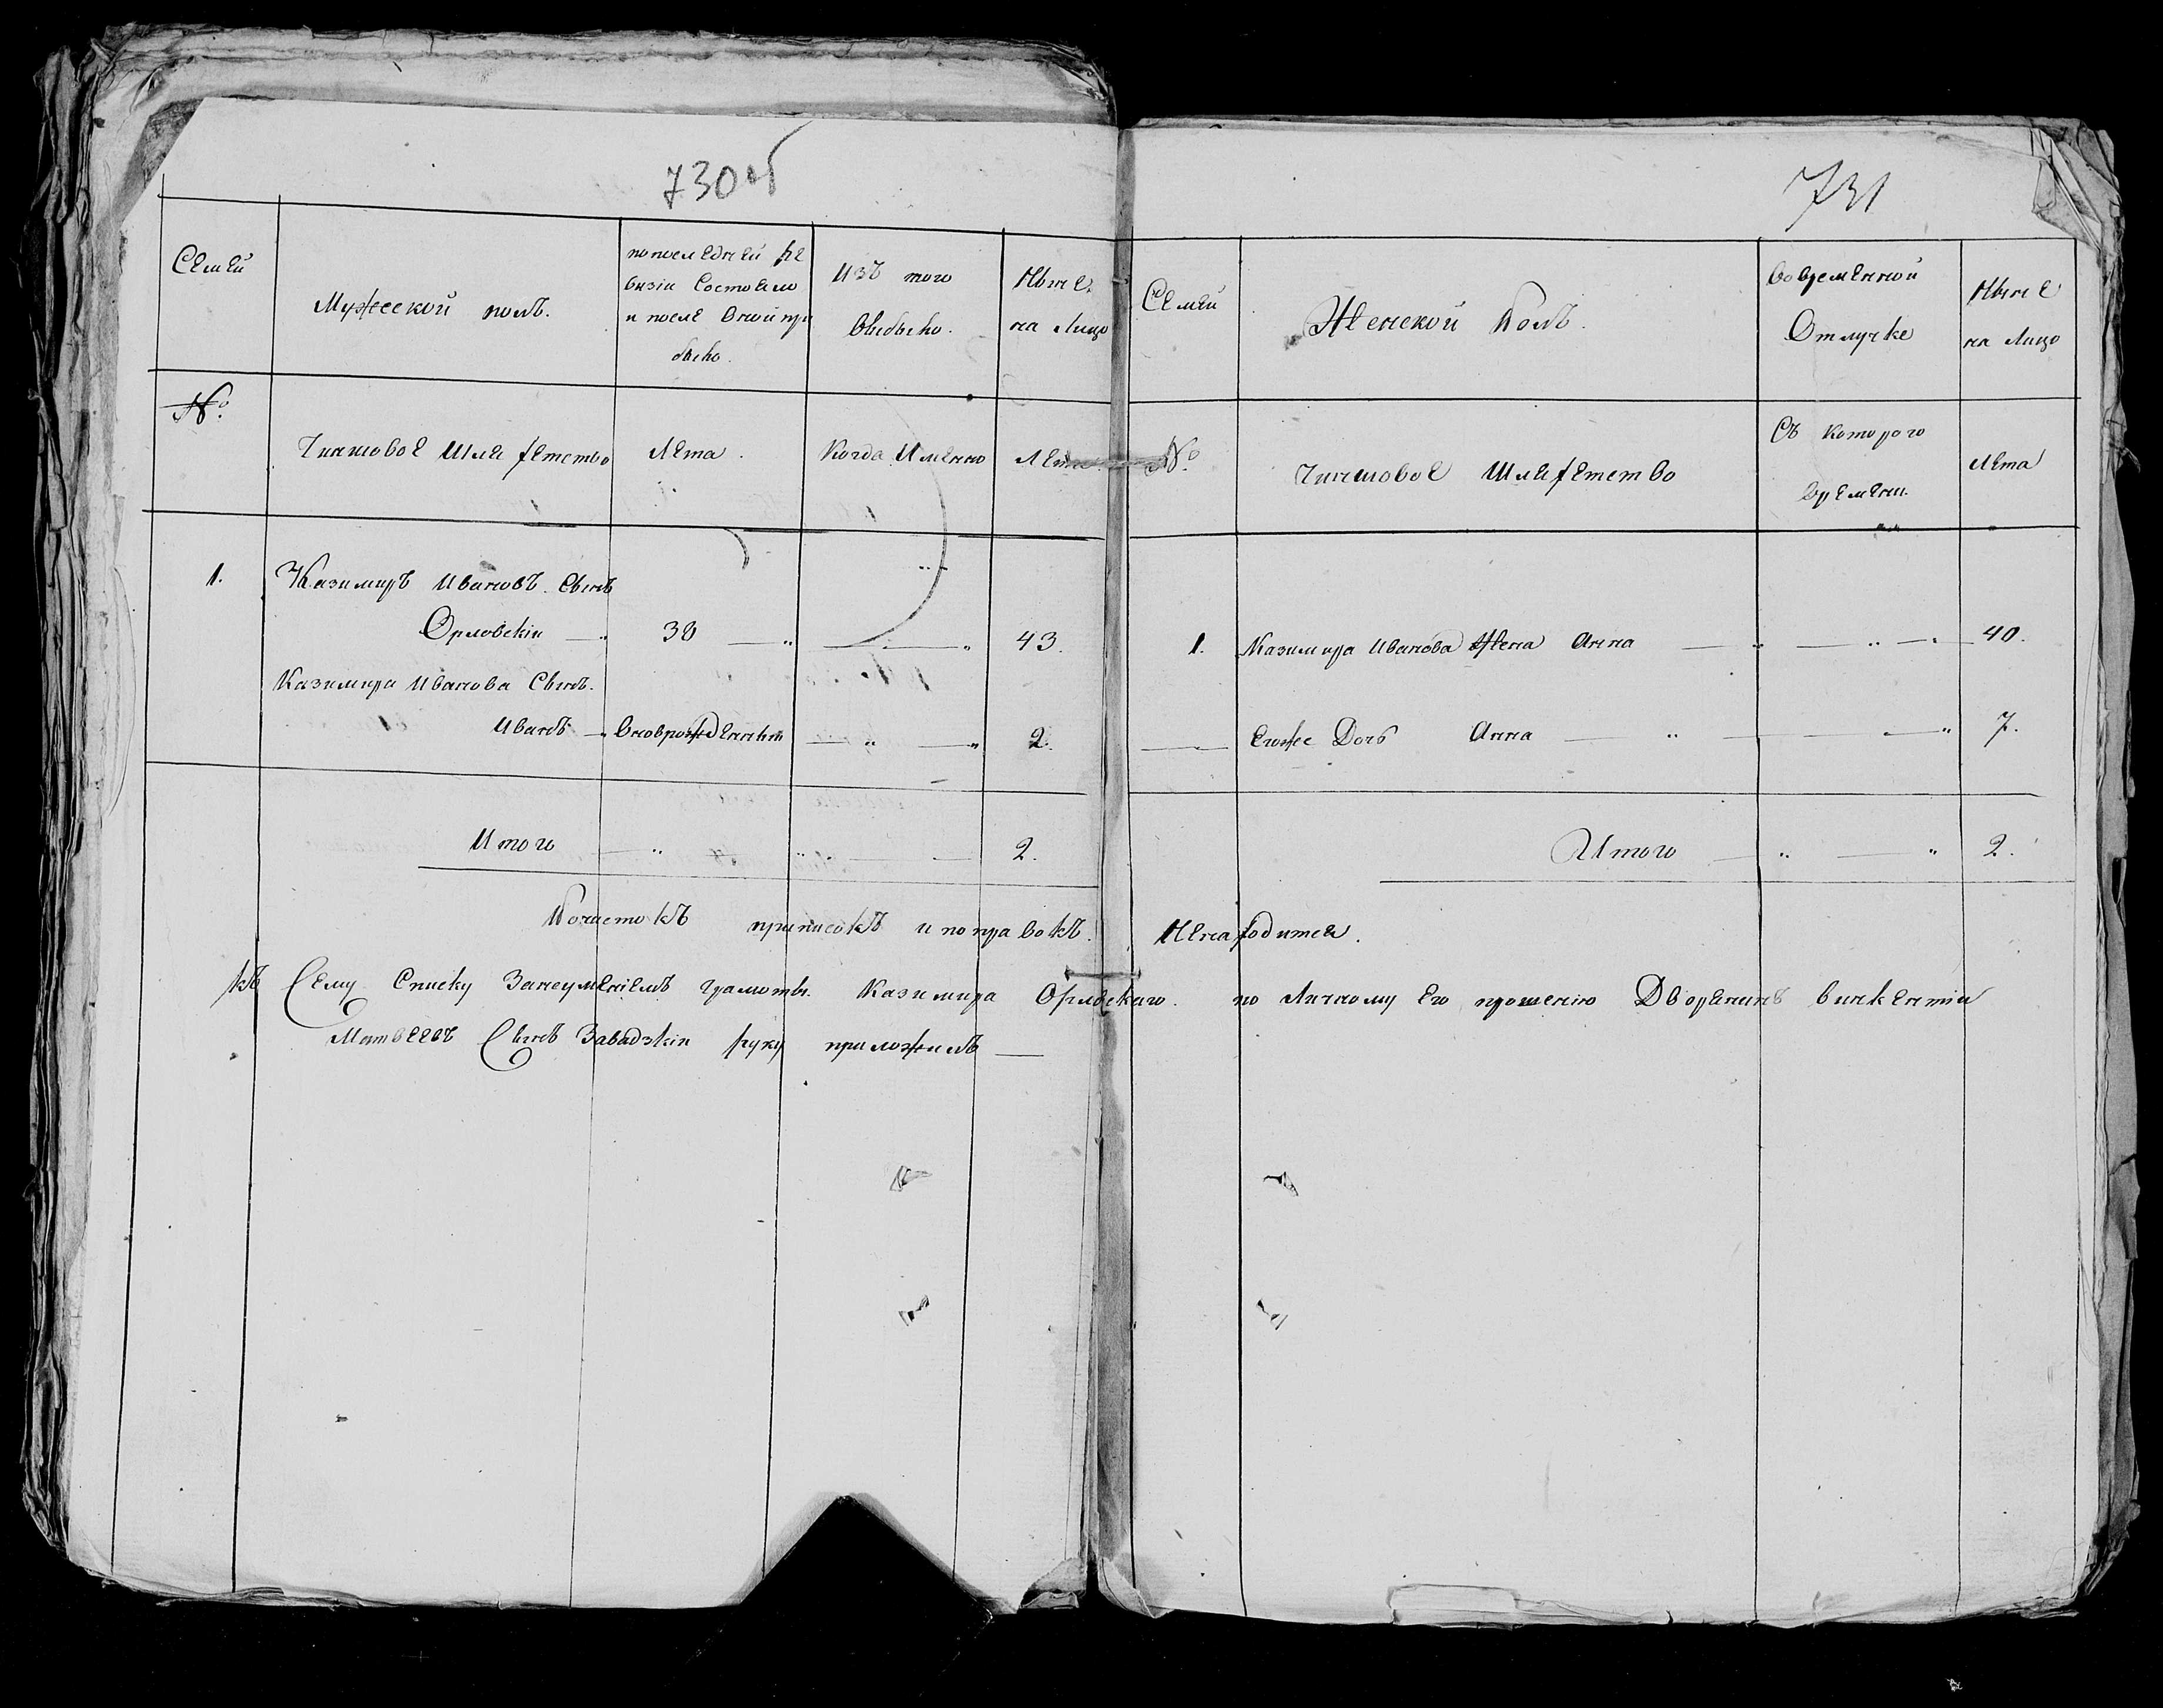 730об
Семей
Мужеской полъ.
по последней ре
визіи Состояло
и после Оной при
было.
Изъ того
выбыло.
Ныне
на Лицо
№
Чиншовое Шляхетство
Лета.
Когда Именно
Лета
1. Казимиръ Ивановъ Сынъ
Орловскіи 38 43.
Казимира Иванова Сынъ.
Иванъ вноврожденны 2.
Итого 2.
731
Семей
Женской Полъ.
Вовременной
Отлучке
Ныне
на Лицо
№
Чиншовое Шляхетство
Съ которого
времени.
Лета
1. Казимира Иванова Жена Анна 40.
Егоже Дочь Анна 7.
Итого 2.
Почистокъ приписокъ и поправокъ. Ненаходится.
къ Сему Списку Занеумениемъ грамоты. Казимира Орловскаго. по Личному Его прошению Дворянинъ викентіи
Матвеевъ Сынъ Завадзкіи руку приложилъ